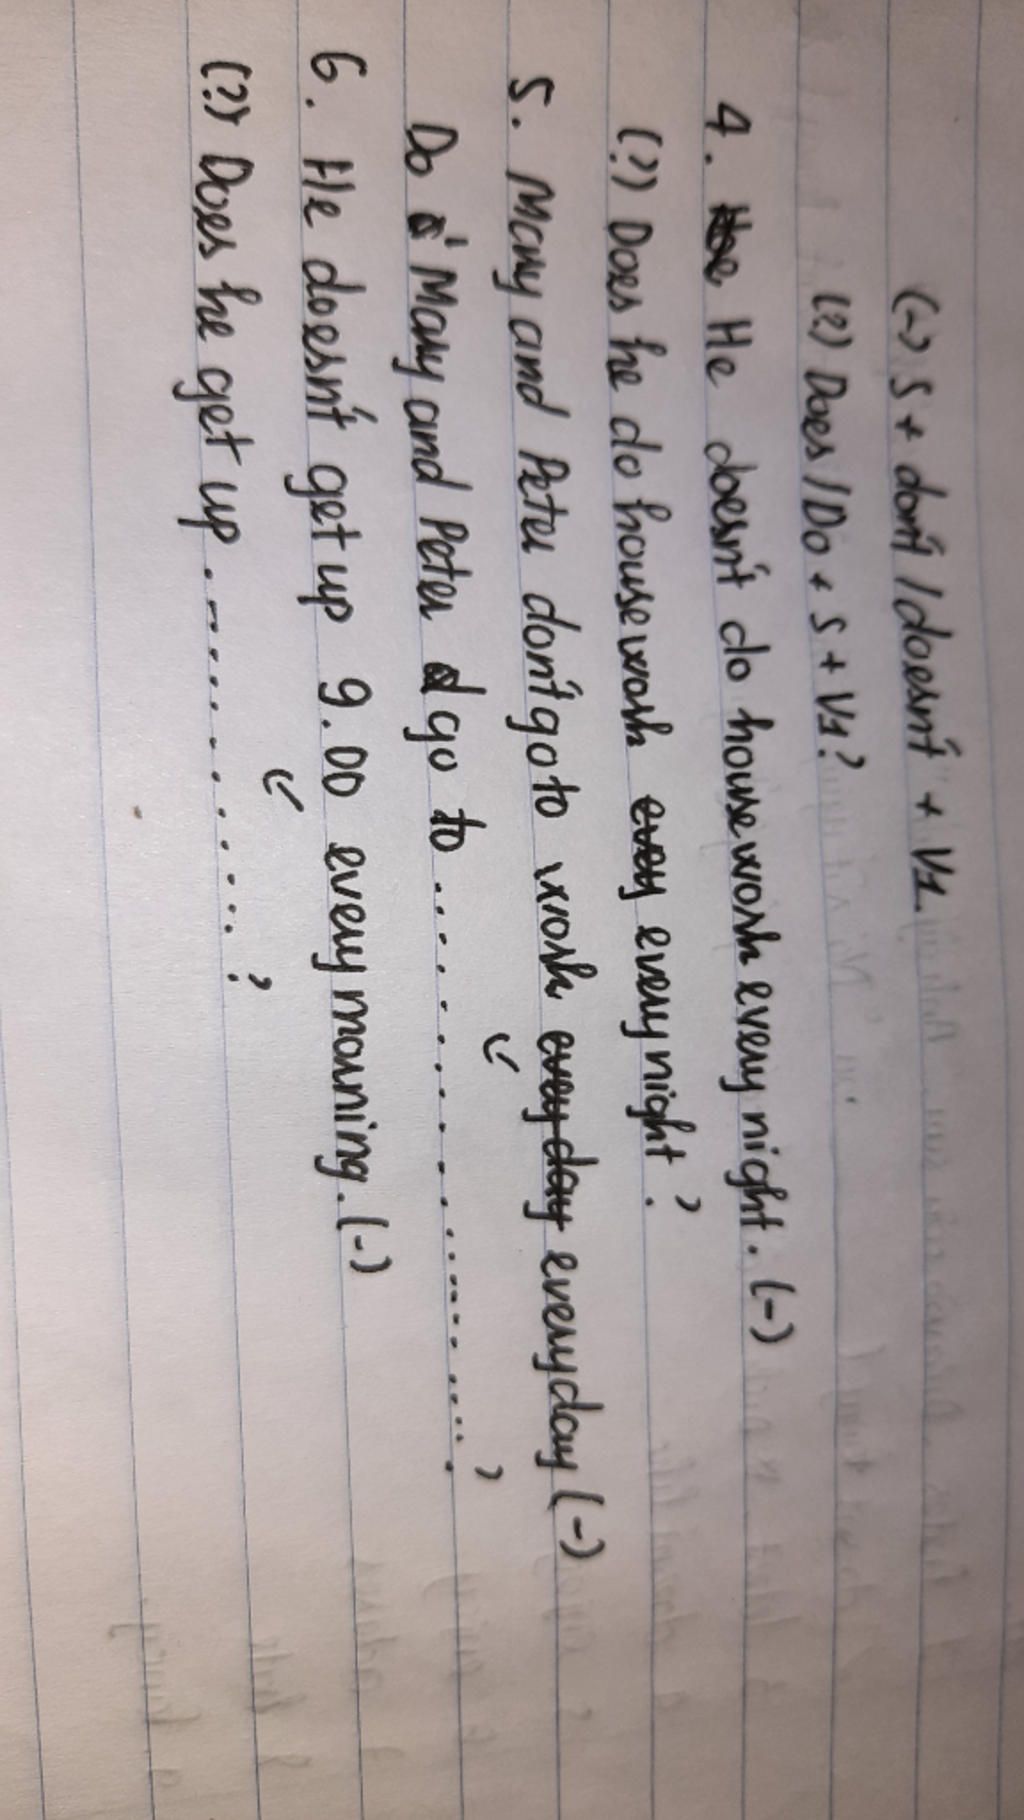 (-) S + don't / doesn't + V1.
(?) Does / Do + S + V1?
4. He doesn't do housework every night. (-)
(?) Does he do housework every night?
5. Mary and Peter don't go to work everyday (-)
Do Mary and Peter go to ..................?
6. He doesn't get up 9.00 every morning. (-)
(?) Does he get up ..............?